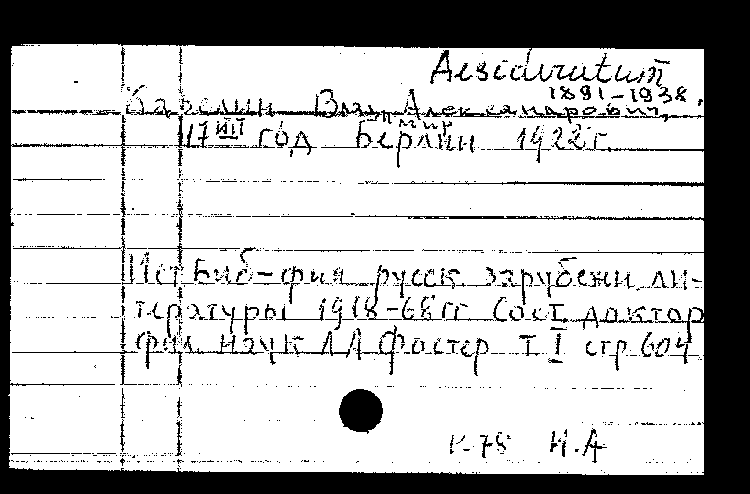 Desideratum
1891-1938.
Карелин Влад Александрович,
имир
17й год Берлин 1922 г.
Ист Биб-фия русск зарубежн ли-
тературы 1918-68 гг Сост. доктор
фил. наук Л А Фостер Т I стр 604
К-78 Н.А